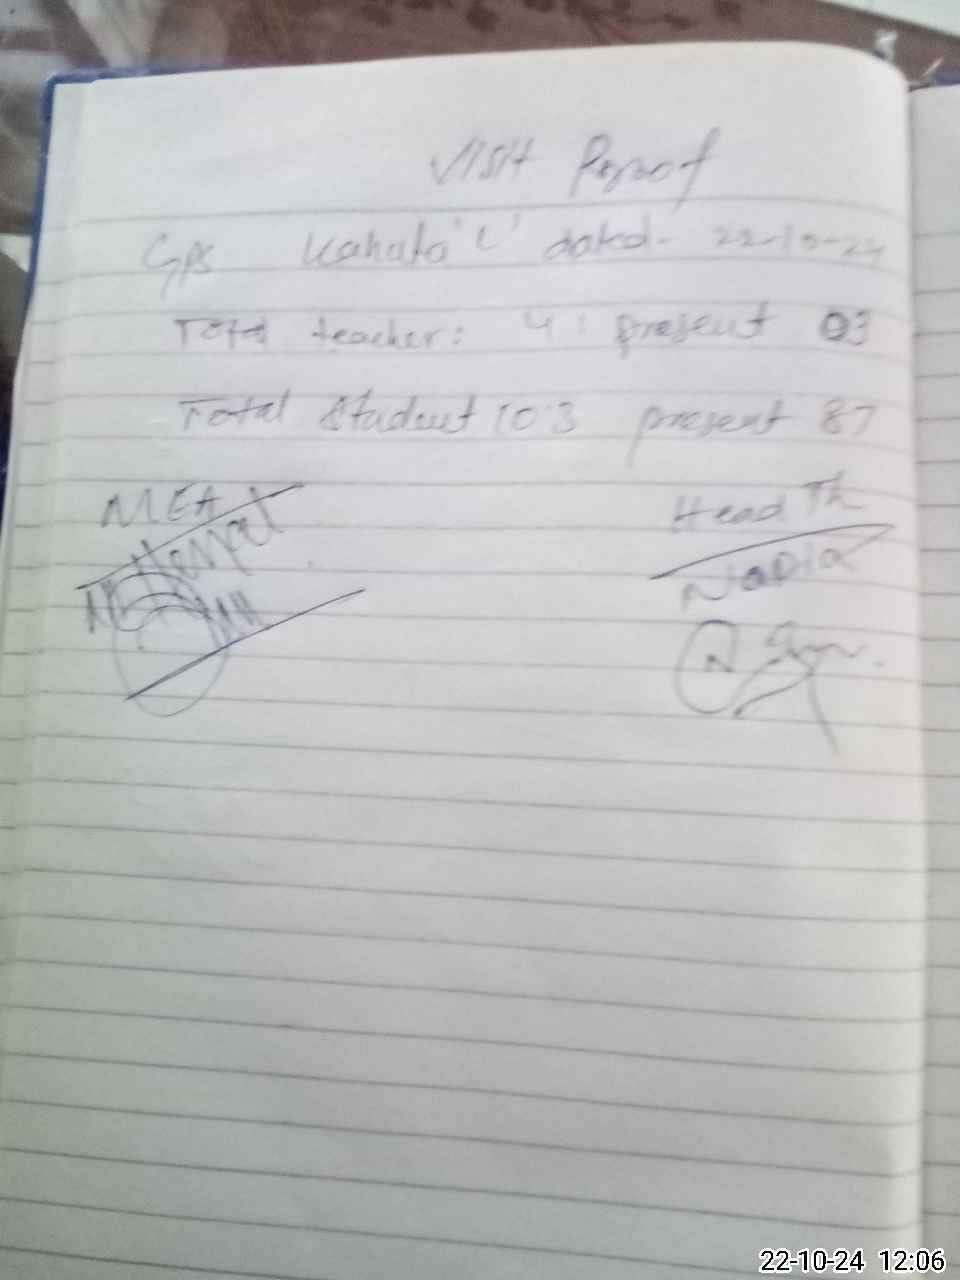 Visit Proof
GPS Kahata 'C' dated- 22-10-24
Total teacher: 4: present 03
Total Student 103 present 87
MEA
Head Th
Nadia
22-10-24 12:06